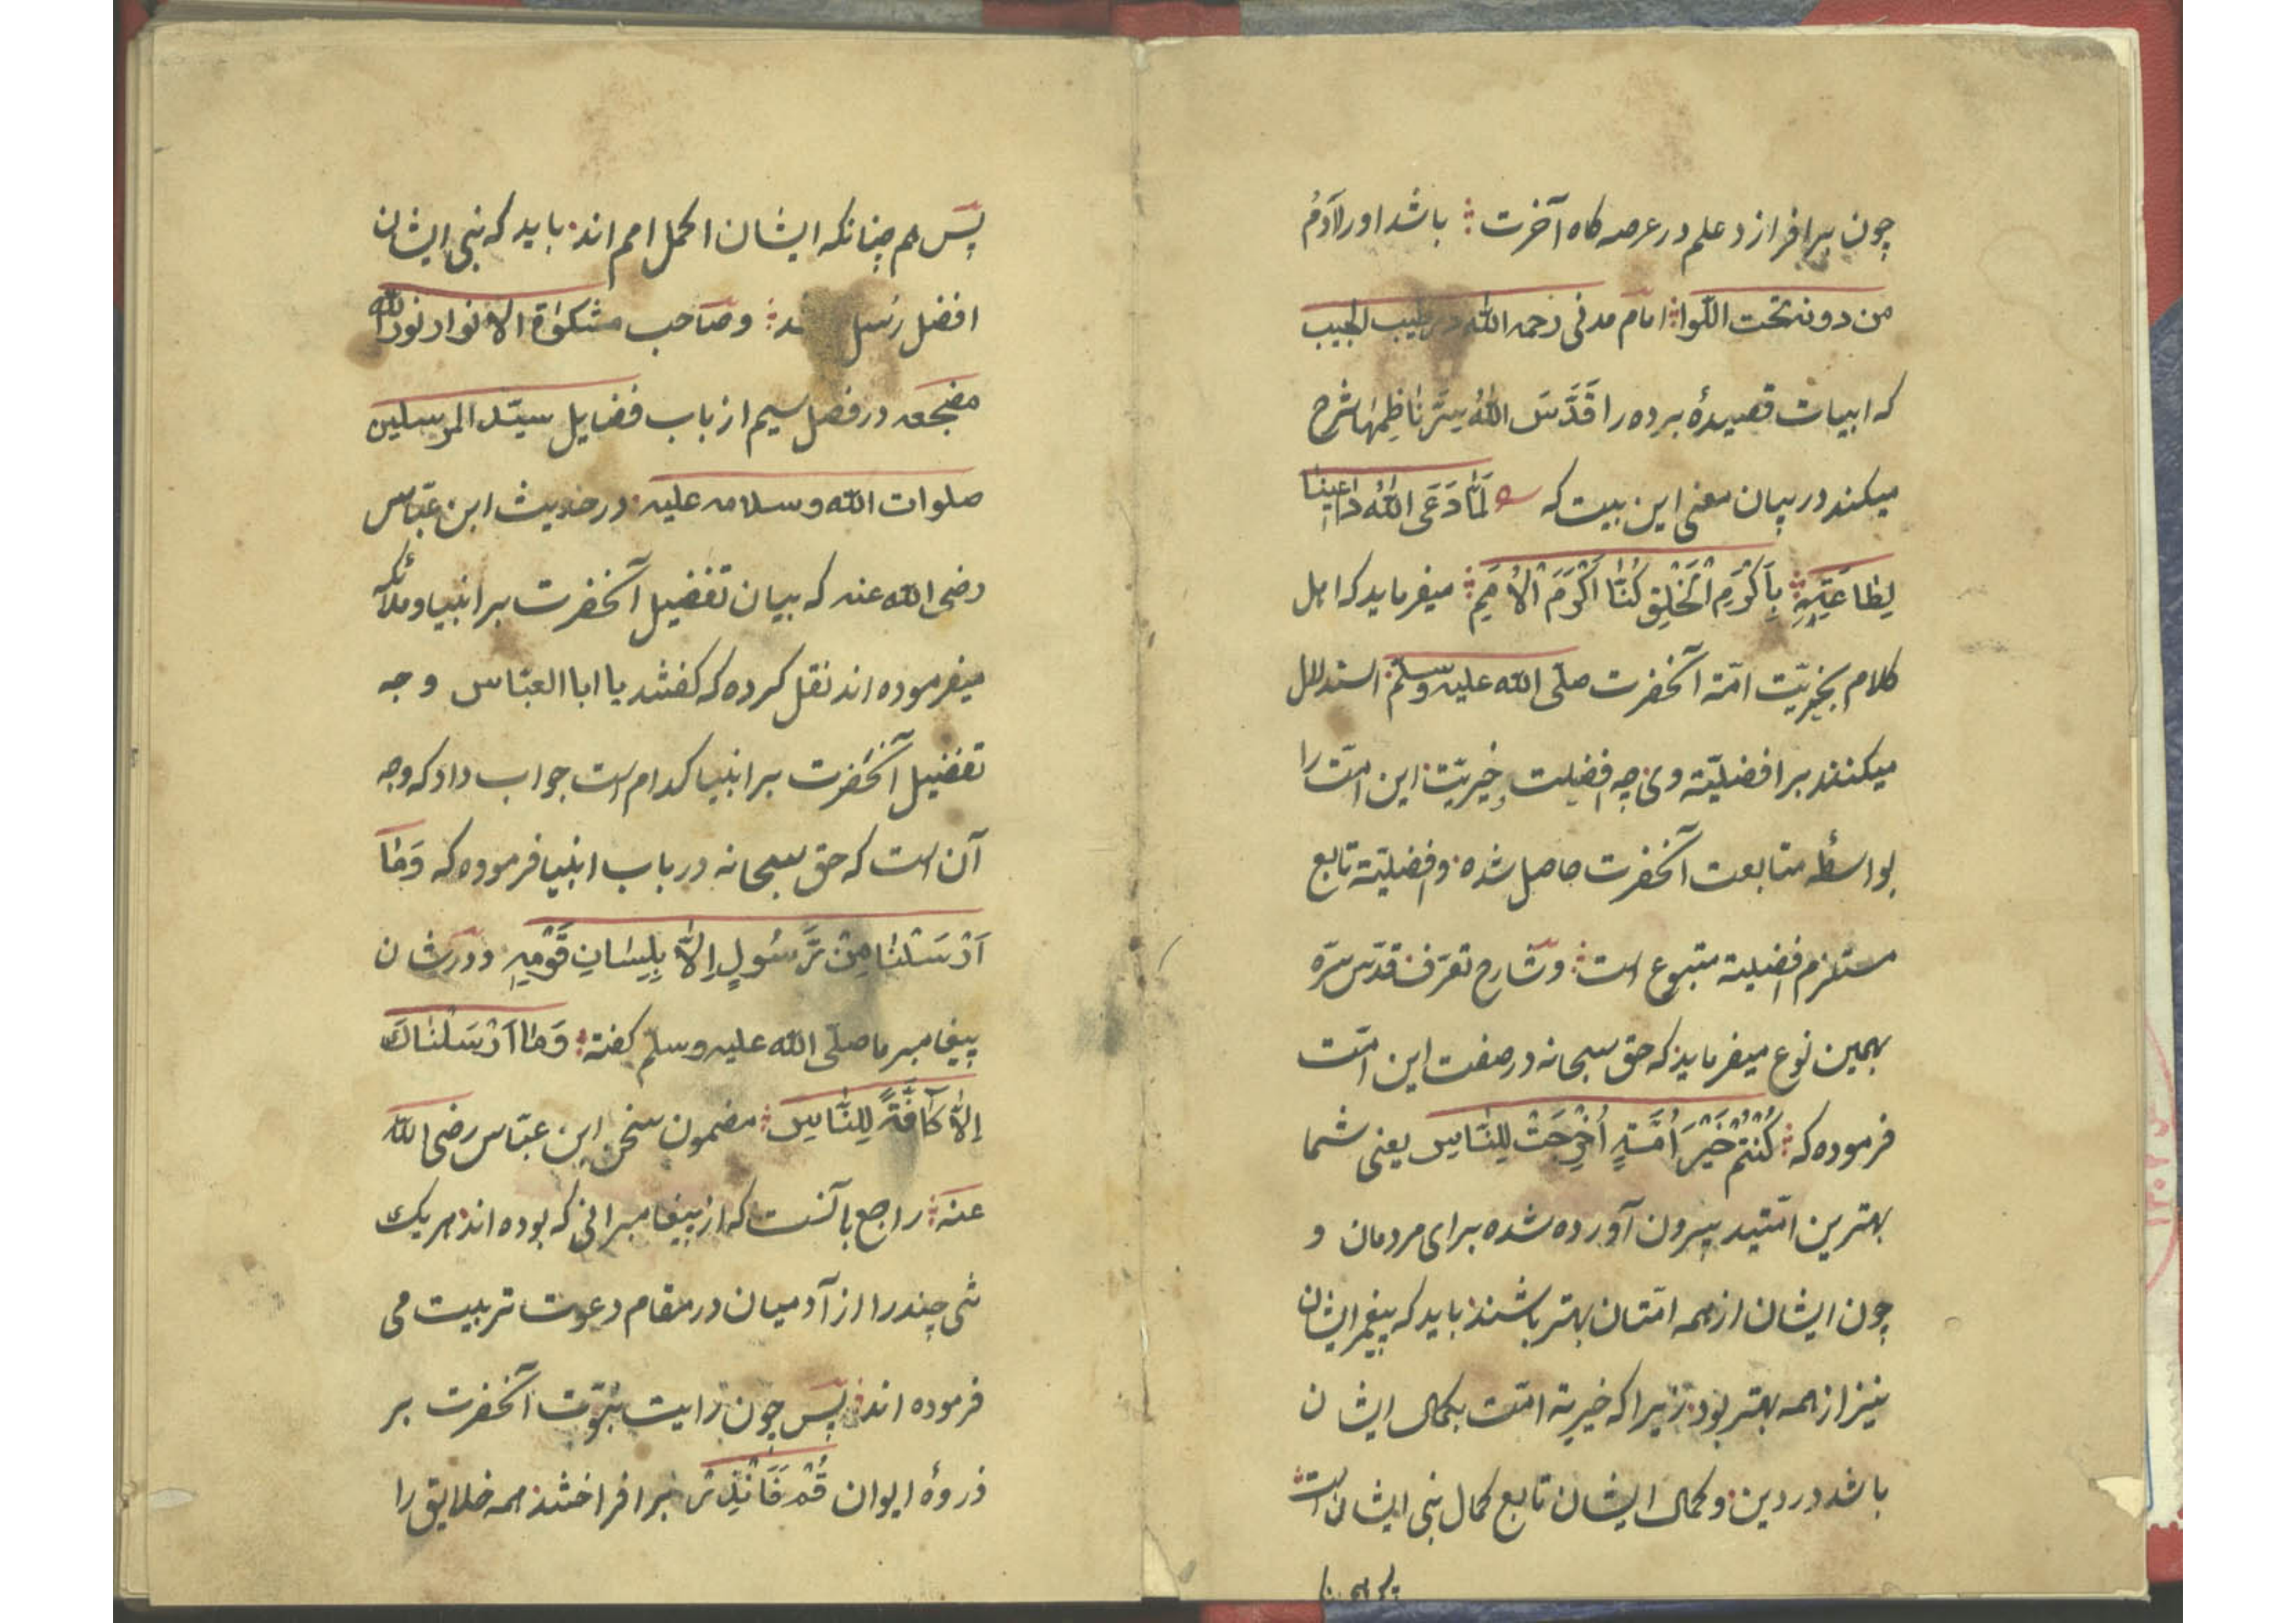 چون برافرازد علم در عرصه کاه آخرت ؞ باشد اورا آدمُ
من دونه تحت اللّوا ؞ امام مدنی رحمه الله در طیب الحبیب
که ابیات قصیدهٔ برده را قَدَّسَ اللهُ سِرَّ نَاظِمِهَا شرح
میکند در بیان معنی این بیت که لَمَّا دَعَی اللهُ دَاعِینَا
لِطَاعَتِهِ ؞ بِاَکْرَمِ الْخَلْقِ کُنَّا اَکْرَمَ الْاُمَمِ ؞ میفرماید که اهل
کلام بخیریّت امّة آنحضرت صلّی الله علیه وسلّم استدلال
میکنند بر افضلیّة وی چه افضلیت وخیریّت این امّت را
بواسطهٔ متابعت آنحضرت حاصل شده وافضلیّة تابع
مستلزم افضلیة متبوع است ؞ وشارح تعرّف قدّس سرّه
بهمین نوع میفرماید که حق سبحانه در صفت این امّت
فرموده که ؞ کُنْتُمْ خَیْرَ اُمَّةٍ اُخْرِجَتْ لِلنَّاسِ یعنی شما
بهترین امّتید بیرون آورده شده برای مردمان و
چون ایشان از همه امّتان بهتر باشند باید که پیغمبر ایشان
نیز از همه بهتر بود زیرا که خیریة امّت بکمال ایشان
باشد در دین وکمال ایشان تابع کمال نبی ایشان است ؞
پس هم چنانکه ایشان اکمل امم اند باید که نبی ایشان
افضل رسل ؞ وصاحب مشکوٰة الانوار نورالله
مضجعه در فصل سیم از باب فضایل سیّد المرسلین
صلوات الله وسلامه علیه در حدیث ابن عبّاس
رضی الله عنه که بیان تفضیل آنحضرت بر انبیا وملائکه
میفرموده اند نقل کرده که کفتند یا ابا العبّاس وجه
تفضیل آنحضرت بر انبیا کدام است جواب داد که وجه
آن است که حق سبحانه در باب انبیا فرموده که وَمَا
اَرْسَلْنَا مِنْ رَّسُولٍ اِلاَّ بِلِسَانِ قَوْمِهِ ودر شان
پیغامبر ما صلّی الله علیه وسلّم کفته ؞ وَمَا اَرْسَلْنَاكَ
اِلاَّ کَافَّةً لِلنَّاسِ ؞ مضمون سخن ابن عبّاس رضی الله
عنه ؞ راجع بآنست که از پیغامبرانی که بوده اند هر یك
شی چند را از آدمیان در مقام دعوت تربیت می
فرموده اند پس چون رایت نبوّت آنحضرت بر
ذروهٔ ایوان قُمْ فَاَنْذِرْ برافراختند همه خلایق را